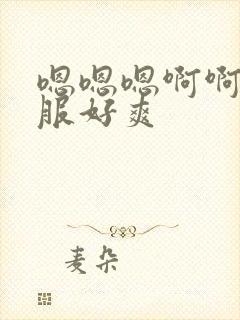 嗯嗯嗯啊啊
服好爽
麦朵